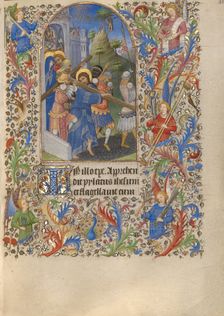 In illo tpe. Apprehen
dit pylatus ihesum
et flagellauit eum